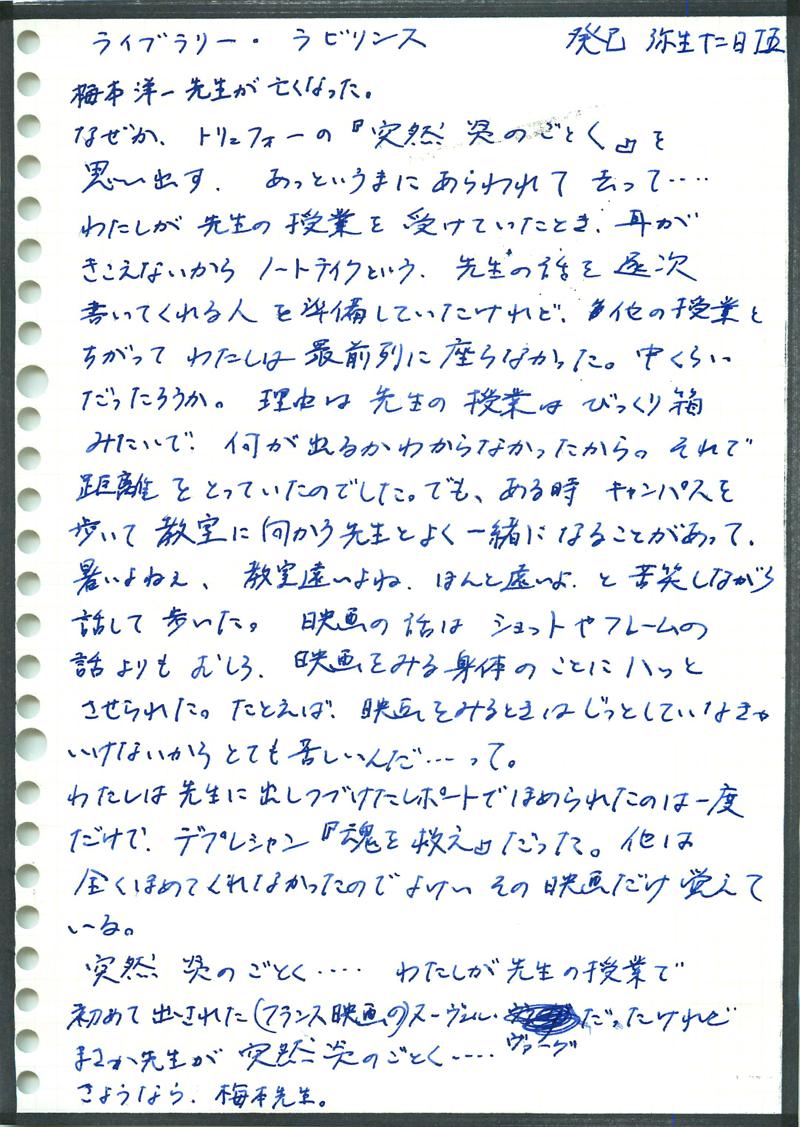 ライブラリー・ラビリンス 癸巳 弥生十二日
梅本洋一先生が亡くなった。
なぜか、トリュフォーの『突然炎のごとく』を
思い出す. あっというまにあらわれて 去って‥‥
わたしが先生の授業を受けていたとき、耳が
きこえないから ノートテイクという、先生の話を逐次
書いてくれる人を準備していたけれど、他の授業と
ちがって わたしは最前列に座らなかった。中くらい
だったろうか。理由は先生の授業はびっくり箱
みたいで、何が出るかわからなかったから。それで
距離をとっていたのでした。でも、ある時 キャンパスを
歩いて教室に向かう先生とよく一緒になることがあって、
暑いよねぇ、教室遠いよね、ほんと遠いよ、と苦笑しながら
話して歩いた。映画の話はショットやフレームの
話よりもむしろ、映画をみる身体のことにハッと
させられた。たとえば、映画をみるときはじっとしていなきゃ
いけないからとても苦しいんだ‥‥って。
わたしは先生に出しつづけたレポートでほめられたのは一度
だけで、デプレシャン『魂を救え』だった。他は
全くほめてくれなかったのでよけい その映画だけ覚えて
いる。
突然 炎のごとく‥‥ わたしが先生の授業で
初めて出された(フランス映画の)ヌーヴェル・ヴァーグだったけれど
まさか先生が 突然炎のごとく‥‥
さようなら、梅本先生。